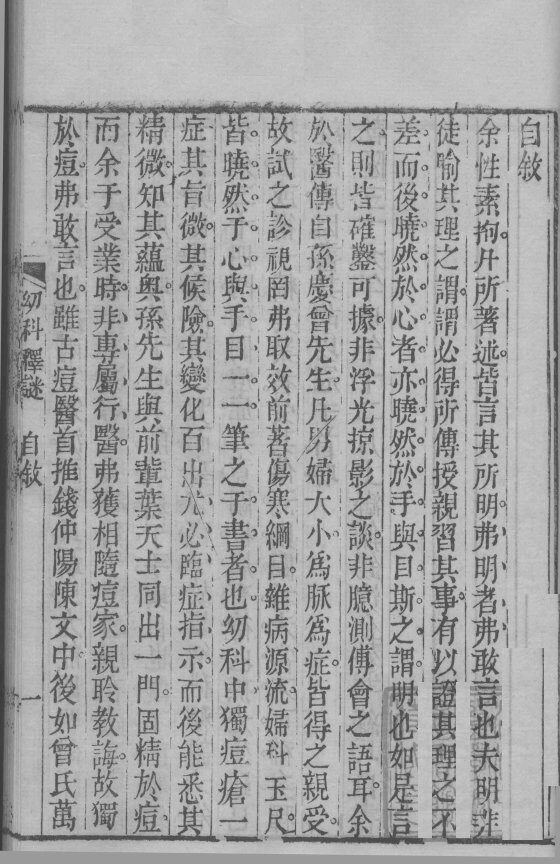 自敘
余性素拘凡所著述皆言其所明弗明者弗敢言也夫明非
徒喻其理之謂謂必得所傳授親習其事有以證其理之不
差而後曉然於心者亦曉然於手與目斯之謂明也如是言
之則皆確鑿可據非浮光掠影之談非臆測傅會之語耳余
於醫傳自孫慶曾先生凡男婦大小為脈為症皆得之親受
故試之診視罔弗取效前著傷寒綱目雜病源流婦科玉尺
皆曉然于心與手目一一筆之于書者也幼科中獨痘瘡一
症其旨微其候險其變化百出尤必臨症指示而後能悉其
精微知其蘊奧孫先生與前輩葉天士同出一門固精於痘
而余于受業時非專屬行醫弗獲相隨痘家親聆教誨故獨
於痘弗敢言也雖古痘醫首推錢仲陽陳文中後如曾氏萬
幼科釋謎 自敘 一